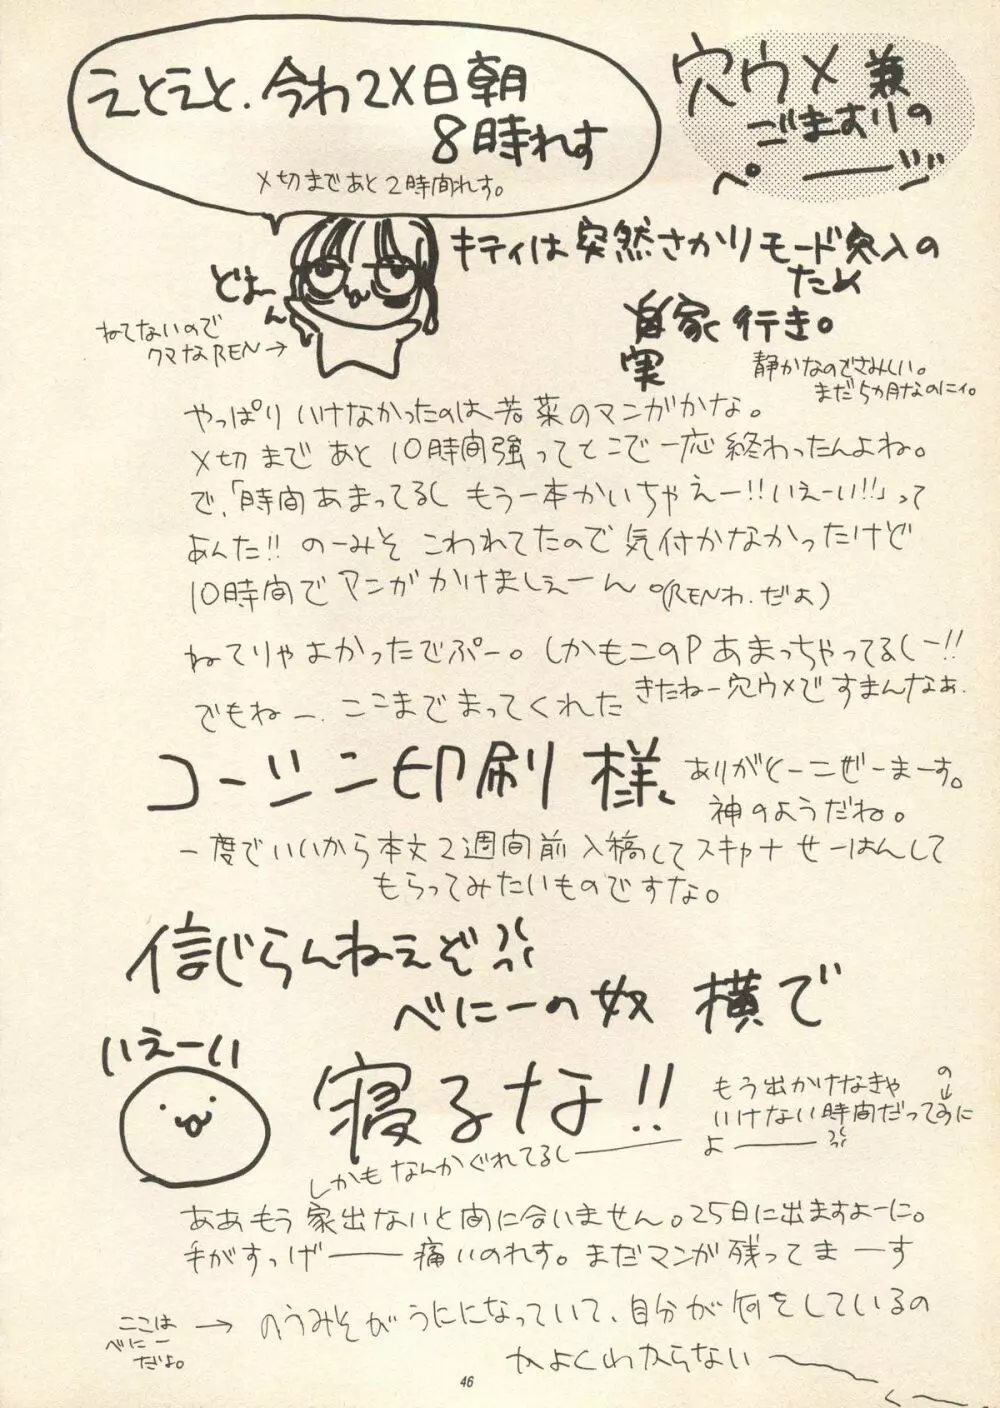 えとえと、今わ2X日朝
8時れす
〆切まであと2時間れす。
穴ウメ兼
ごますりの
ページ
どよーん
ねてないので
クマなREN→
キティは突然さかりモード突入の
ため
実家行き。
静かなのでさみしい。
まだ5か月なのにィ。
やっぱりいけなかったのは若菜のマンガかな。
〆切まであと10時間強ってとこで一応終わったんよね。
で、「時間あまってるしもう一本かいちゃえー!!いえーい!!」って
あんた!!のーみそこわれてたので気付かなかったけど
10時間でマンガかけましぇーん。(RENわ.だよ)
ねてりゃよかったでぷー。しかもこのPあまっちゃってるしー!!
きたねー穴ウメですまんなぁ.
でもねー.ここまでまってくれた
コーシン印刷様、
ありがとーごぜーまーす。
神のようだね。
一度でいいから本文2週間前入稿してスキャナせーはんして
もらってみたいものですな。
信じらんねえぞ
べにーの奴 横で
いえーい
寝るな!!
もう出かけなきゃ
いけない時間だってのに
よー
しかもなんかぐれてるしー
ああもう家出ないと間に合いません。25日に出ますよーに。
手がすっげー痛いのれす。まだマンガ残ってまーす
ここは
べにー
だよ。
→のうみそがうにになっていて、自分が何をしているの
かよくわからない〜
く
46